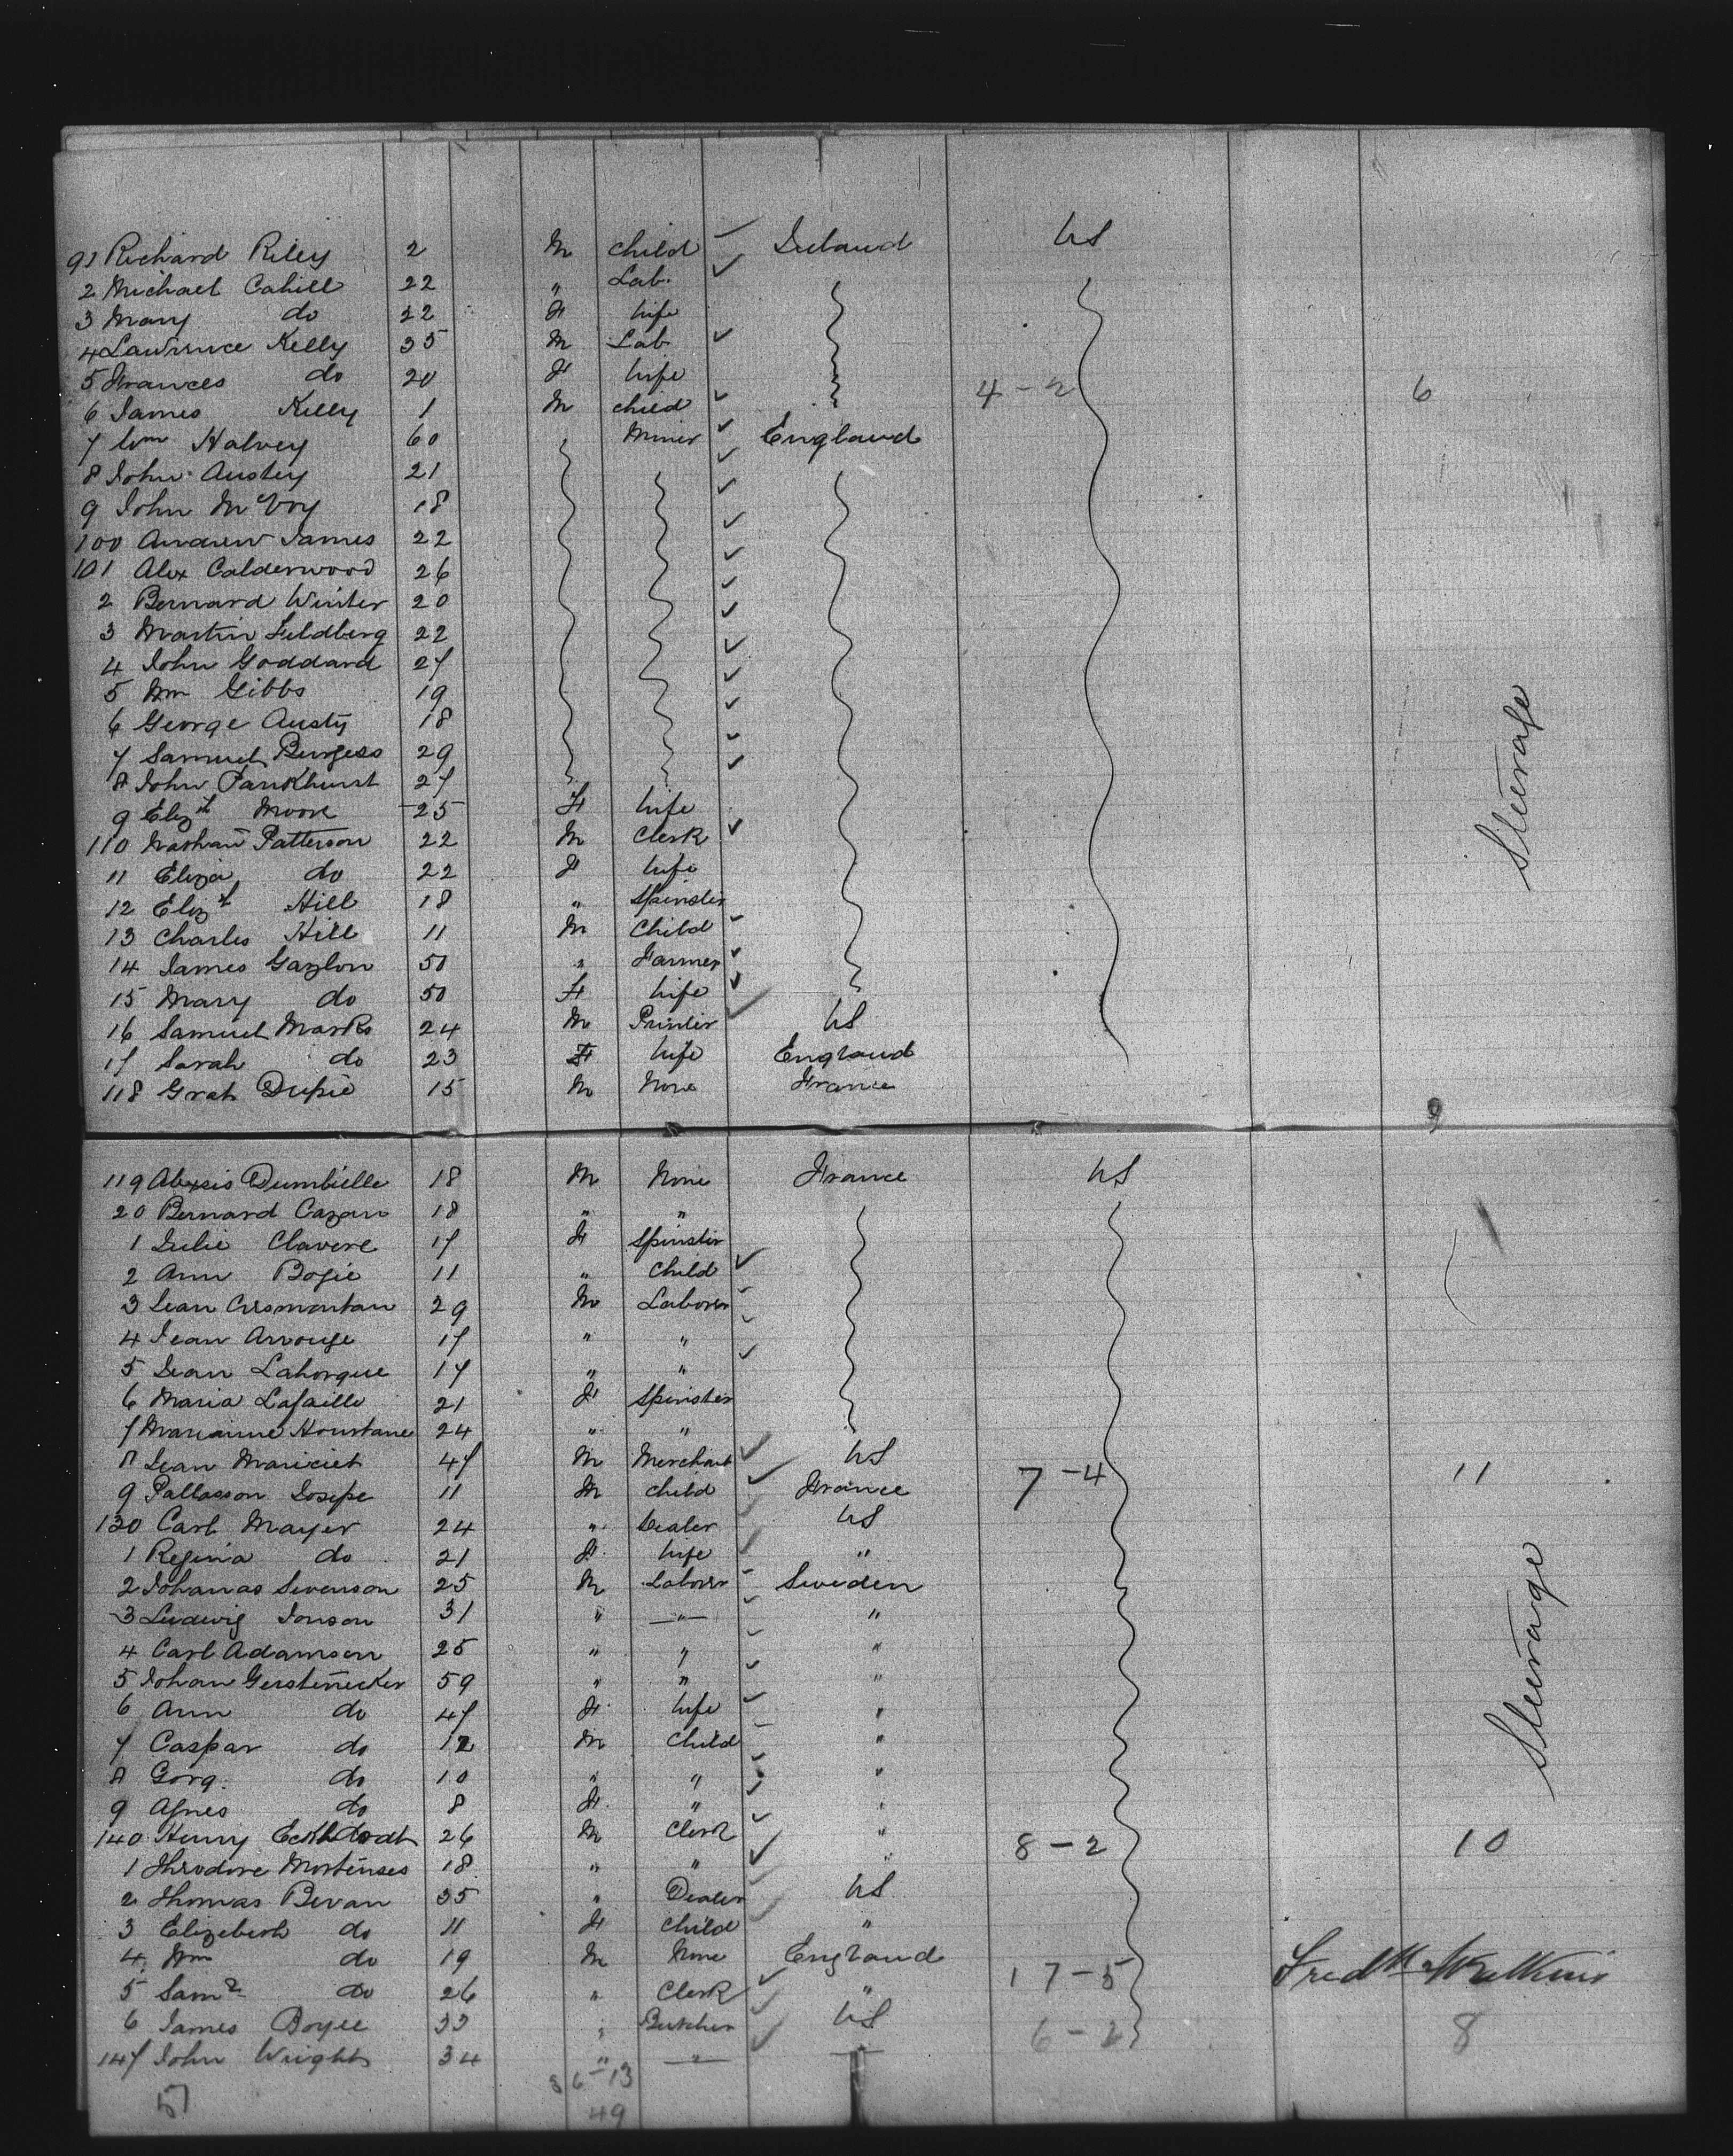 91 Richard Riley 2 M child Ireland US
2 Michael Cahill 22 " Lab.
3 Mary do 22 F Wife
4 Lawrence Kelly 35 M Lab
5 Frances do 20 F Wife 4-2 6
6 James Kelly 1 M child
7 Wm Halvey 60 Miner England
8 John Austey 21
9 John McEvoy 18
100 Andrew James 22
101 Alex Calderwood 26
2 Bernard Winter 20
3 Martin Feldberg 22
4 John Goddard 27
5 Wm Gibbs 19
6 George Austy 18
7 Samuel Burgess 29
8 John Pankhurst 27
Steerage
9 Elizth Moore 25 F Wife
110 Nathan Patterson 22 M Clerk
11 Eliza do 22 F Wife
12 Elizt Hill 18 " Spinster
13 Charles Hill 11 M Child
14 James Gazlon 50 " Farmer
15 Mary do 50 F Wife
16 Samuel Marks 24 M Printer US
17 Sarah do 23 F Wife England
118 Grat Dupie 15 M None France
9
119 Alexsis Dumbielle 18 M None France US
20 Bernard Cazan 18 " "
1 Julie Clavere 17 F Spinster
2 Ann Bogie 11 " Child
3 Jean Cresmontan 29 M Laborer
4 Jean Arrouge 17 " "
5 Jean Lahorque 17 " "
6 Maria Lafaille 21 F Spinster
7 Marianne Houstane 24 " "
8 Jean 47 M Merchant US
9 Pallasson Josepe 11 M child France 7-4 11
130 Carl Mayer 24 " Dealer US
1 Regina do 21 F Wife "
2 Johanas Svenson 25 M Laborer Sweden
3 Ludwig Jonson 31 " " "
4 Carl Adamson 25 " " "
5 Johan Gerstenecker 59 " " "
6 Ann do 47 F Wife "
7 Caspar do 12 M Child "
Steerage
8 Gorg. do 10 " " "
9 Agnes do 8 F " "
140 Henry Eckhdodt 26 M Clerk " 8-2 10
1 Theodore Mortenses 18 " " "
2 Thomas Bevan 35 " Dealer US
3 Elizebeth do 11 F Child "
4 Wm do 19 M None England
5 Saml do 26 " Clerk " 17-5 Fredk Watkins
6 James Boyce 33 " Butcher US 6-2 8
147 John Wright 34 " " "
51 36-13
49